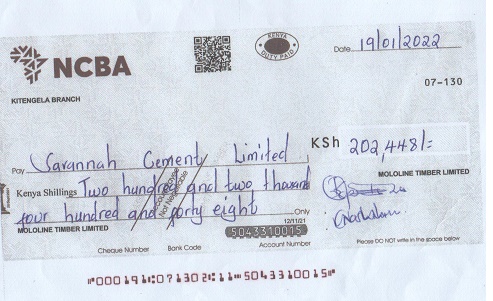 NCBA
KENYA
DUTY PAID
Date 19/01/2022
07-130
KITENGELA BRANCH
Pay Savannah Cement Limited
KSh 202,448/=
Kenya Shillings Two hundred and two thousand
four hundred and forty eight Only
MOLOLINE TIMBER LIMITED
MOLOLINE TIMBER LIMITED
12/11/21
5043310015
Cheque Number Bank Code Account Number
Please DO NOT write in the space below
"000191"07130"11"5043310015"